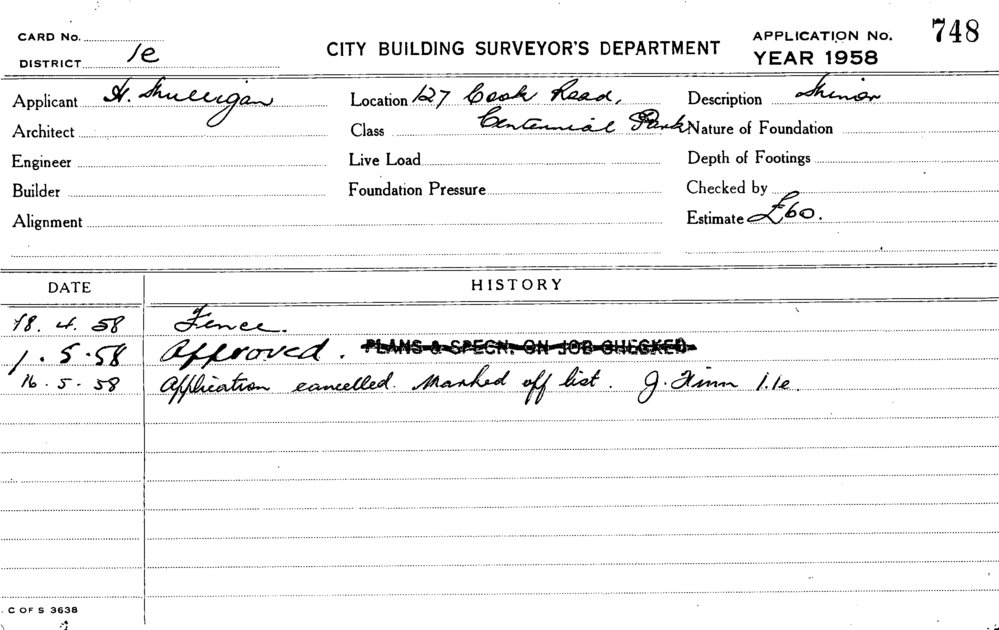 CARD No.
DISTRICT 1e
CITY BUILDING SURVEYOR'S DEPARTMENT
APPLICATION No. 748
YEAR 1958
Applicant H. Mulligan Location 127 Cook Road, Description Minor
Architect Class Centennial Park Nature of Foundation
Engineer Live Load Depth of Footings
Builder Foundation Pressure Checked by
Alignment Estimate £60.
DATE HISTORY
18. 4. 58 Fence.
1. 5. 58 Approved. PLANS & SPECN. ON JOB CHECKED
16. 5. 58 Application cancelled. Marked off list. J. Finn 1.1e
C OF S 3638